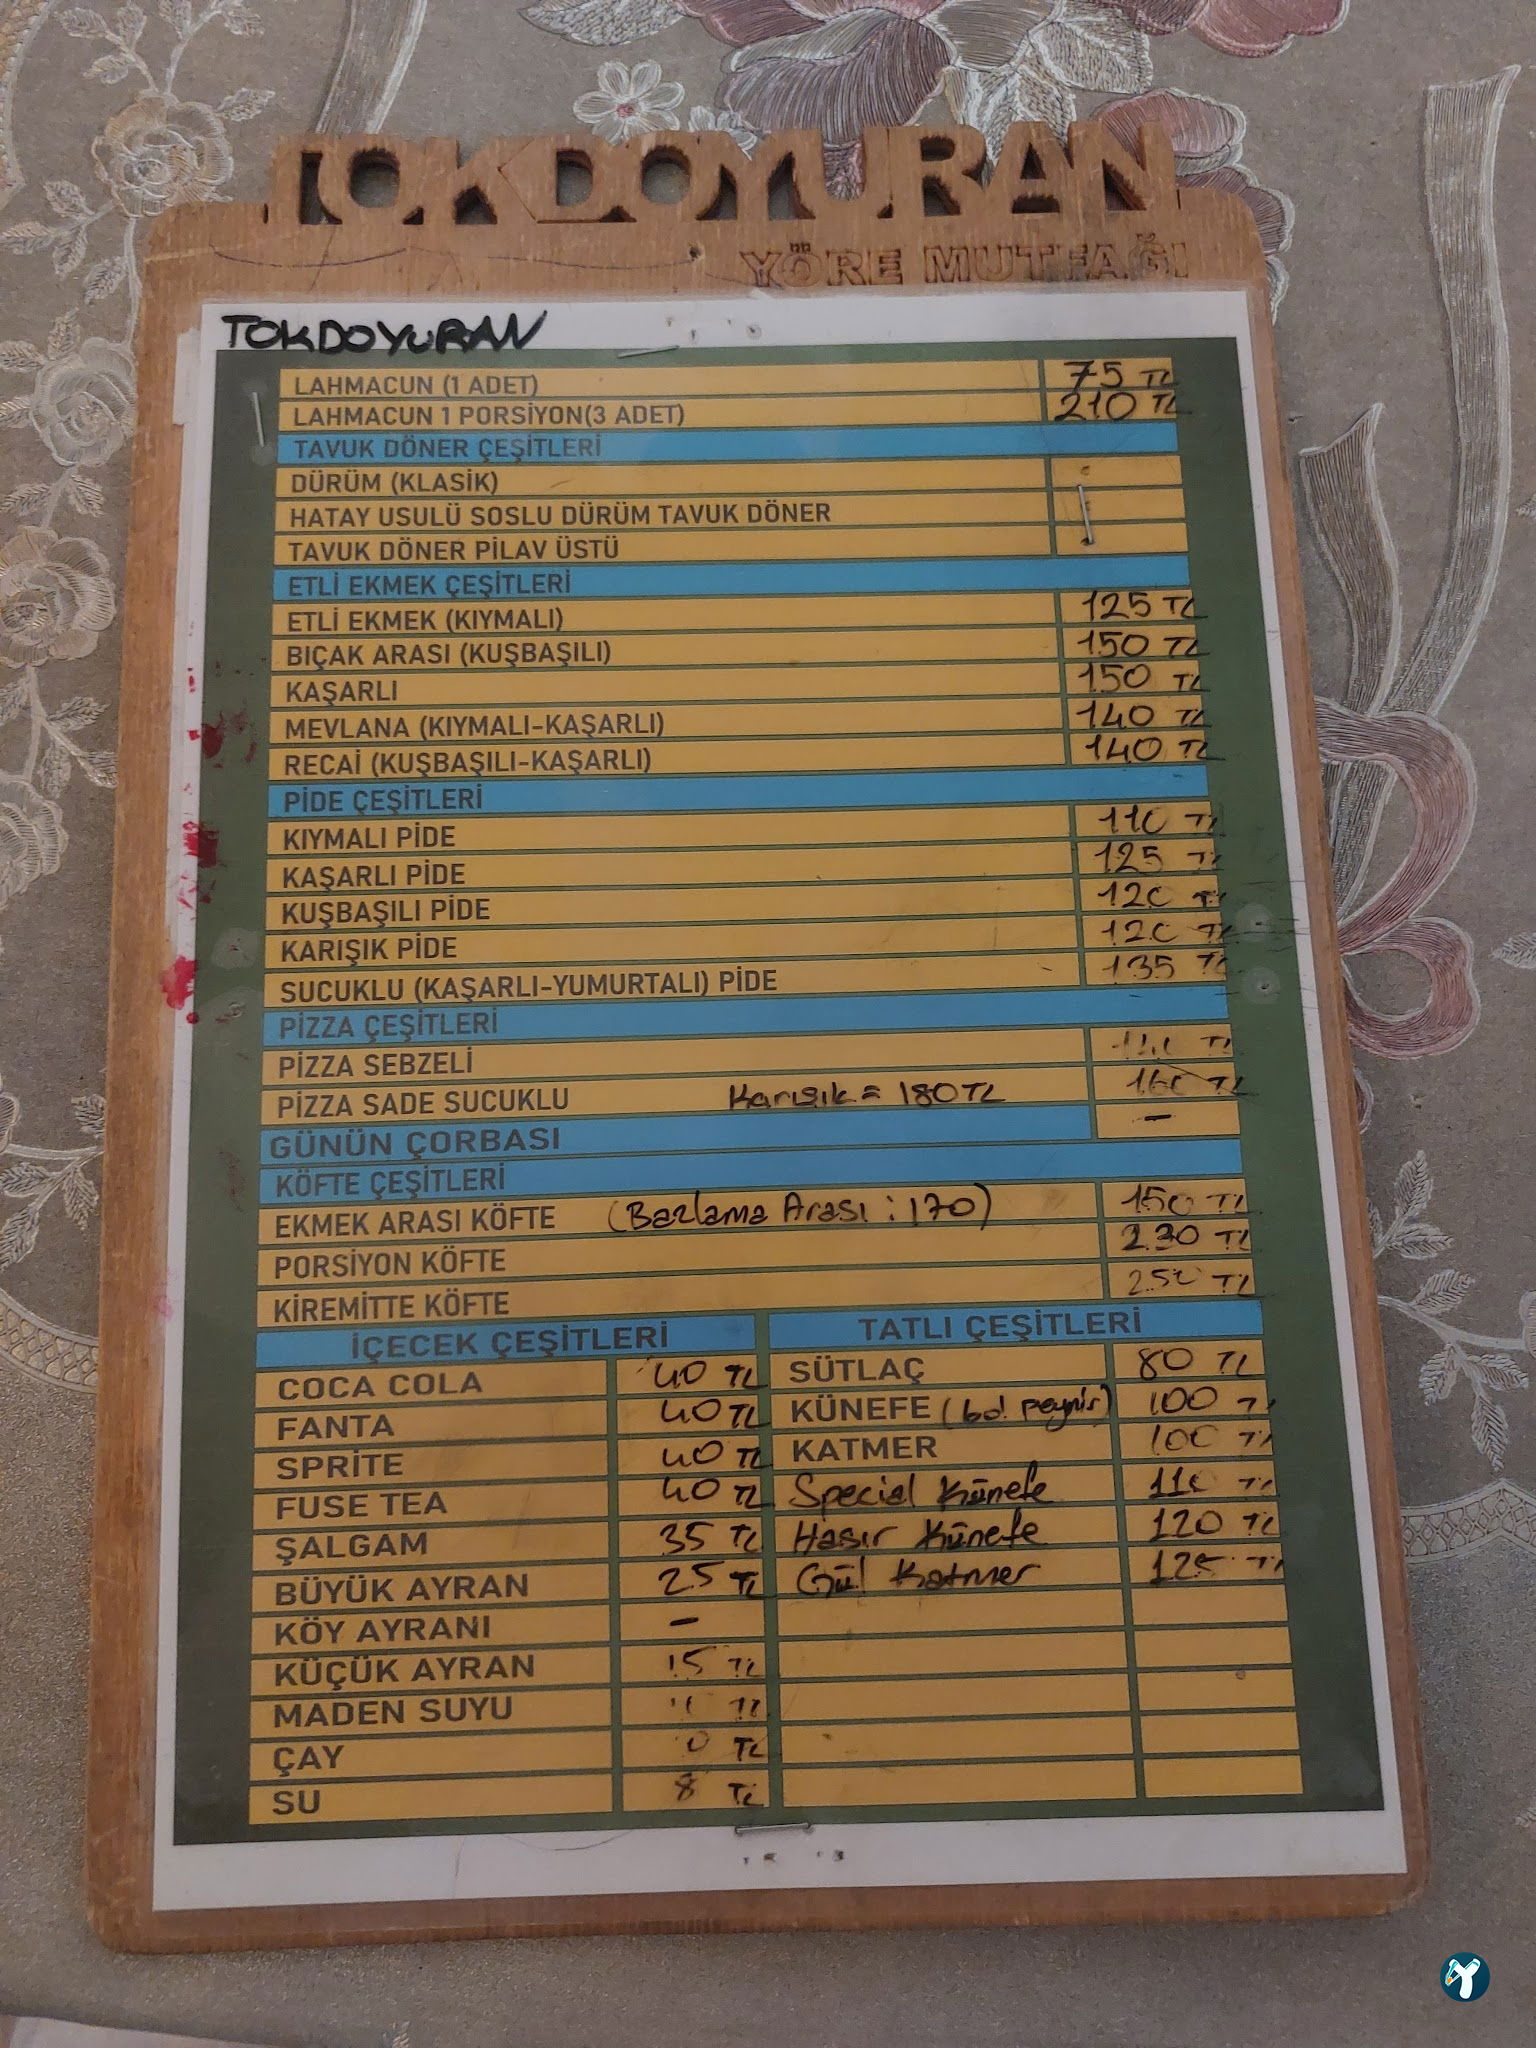 TOKDOYURAN
YÖRE MUTFAĞI
TOKDOYURAN
LAHMACUN (1 ADET) 75 TL
LAHMACUN 1 PORSİYON(3 ADET) 210 TL
TAVUK DÖNER ÇEŞİTLERİ
DÜRÜM (KLASİK)
HATAY USULÜ SOSLU DÜRÜM TAVUK DÖNER
TAVUK DÖNER PİLAV ÜSTÜ
ETLİ EKMEK ÇEŞİTLERİ
ETLİ EKMEK (KIYMALI) 125 TL
BIÇAK ARASI (KUŞBAŞILI) 150 TL
KAŞARLI 150 TL
MEVLANA (KIYMALI-KAŞARLI) 140 TL
RECAİ (KUŞBAŞILI-KAŞARLI) 140 TL
PİDE ÇEŞİTLERİ
KIYMALI PİDE 110 TL
KAŞARLI PİDE 125 TL
KUŞBAŞILI PİDE 120 TL
KARIŞIK PİDE 120 TL
SUCUKLU (KAŞARLI-YUMURTALI) PİDE 135 TL
PİZZA ÇEŞİTLERİ
PİZZA SEBZELİ TL
PİZZA SADE SUCUKLU Karışık = 180 TL 160 TL
GÜNÜN ÇORBASI -
KÖFTE ÇEŞİTLERİ
EKMEK ARASI KÖFTE (Bazlama Arası : 170) 150 TL
PORSİYON KÖFTE 230 TL
KİREMİTTE KÖFTE 250 TL
İÇECEK ÇEŞİTLERİ
COCA COLA 40 TL
FANTA 40 TL
SPRİTE 40 TL
FUSE TEA 40 TL
ŞALGAM 35 TL
BÜYÜK AYRAN 25 TL
KÖY AYRANI -
KÜÇÜK AYRAN 15 TL
MADEN SUYU TL
ÇAY TL
SU 8 TL
TATLI ÇEŞİTLERİ
SÜTLAÇ 80 TL
KÜNEFE (bol peynir) 100 TL
KATMER 100 TL
Special Künefe 110 TL
Hasır Künefe 120 TL
Gül Katmer 125 TL